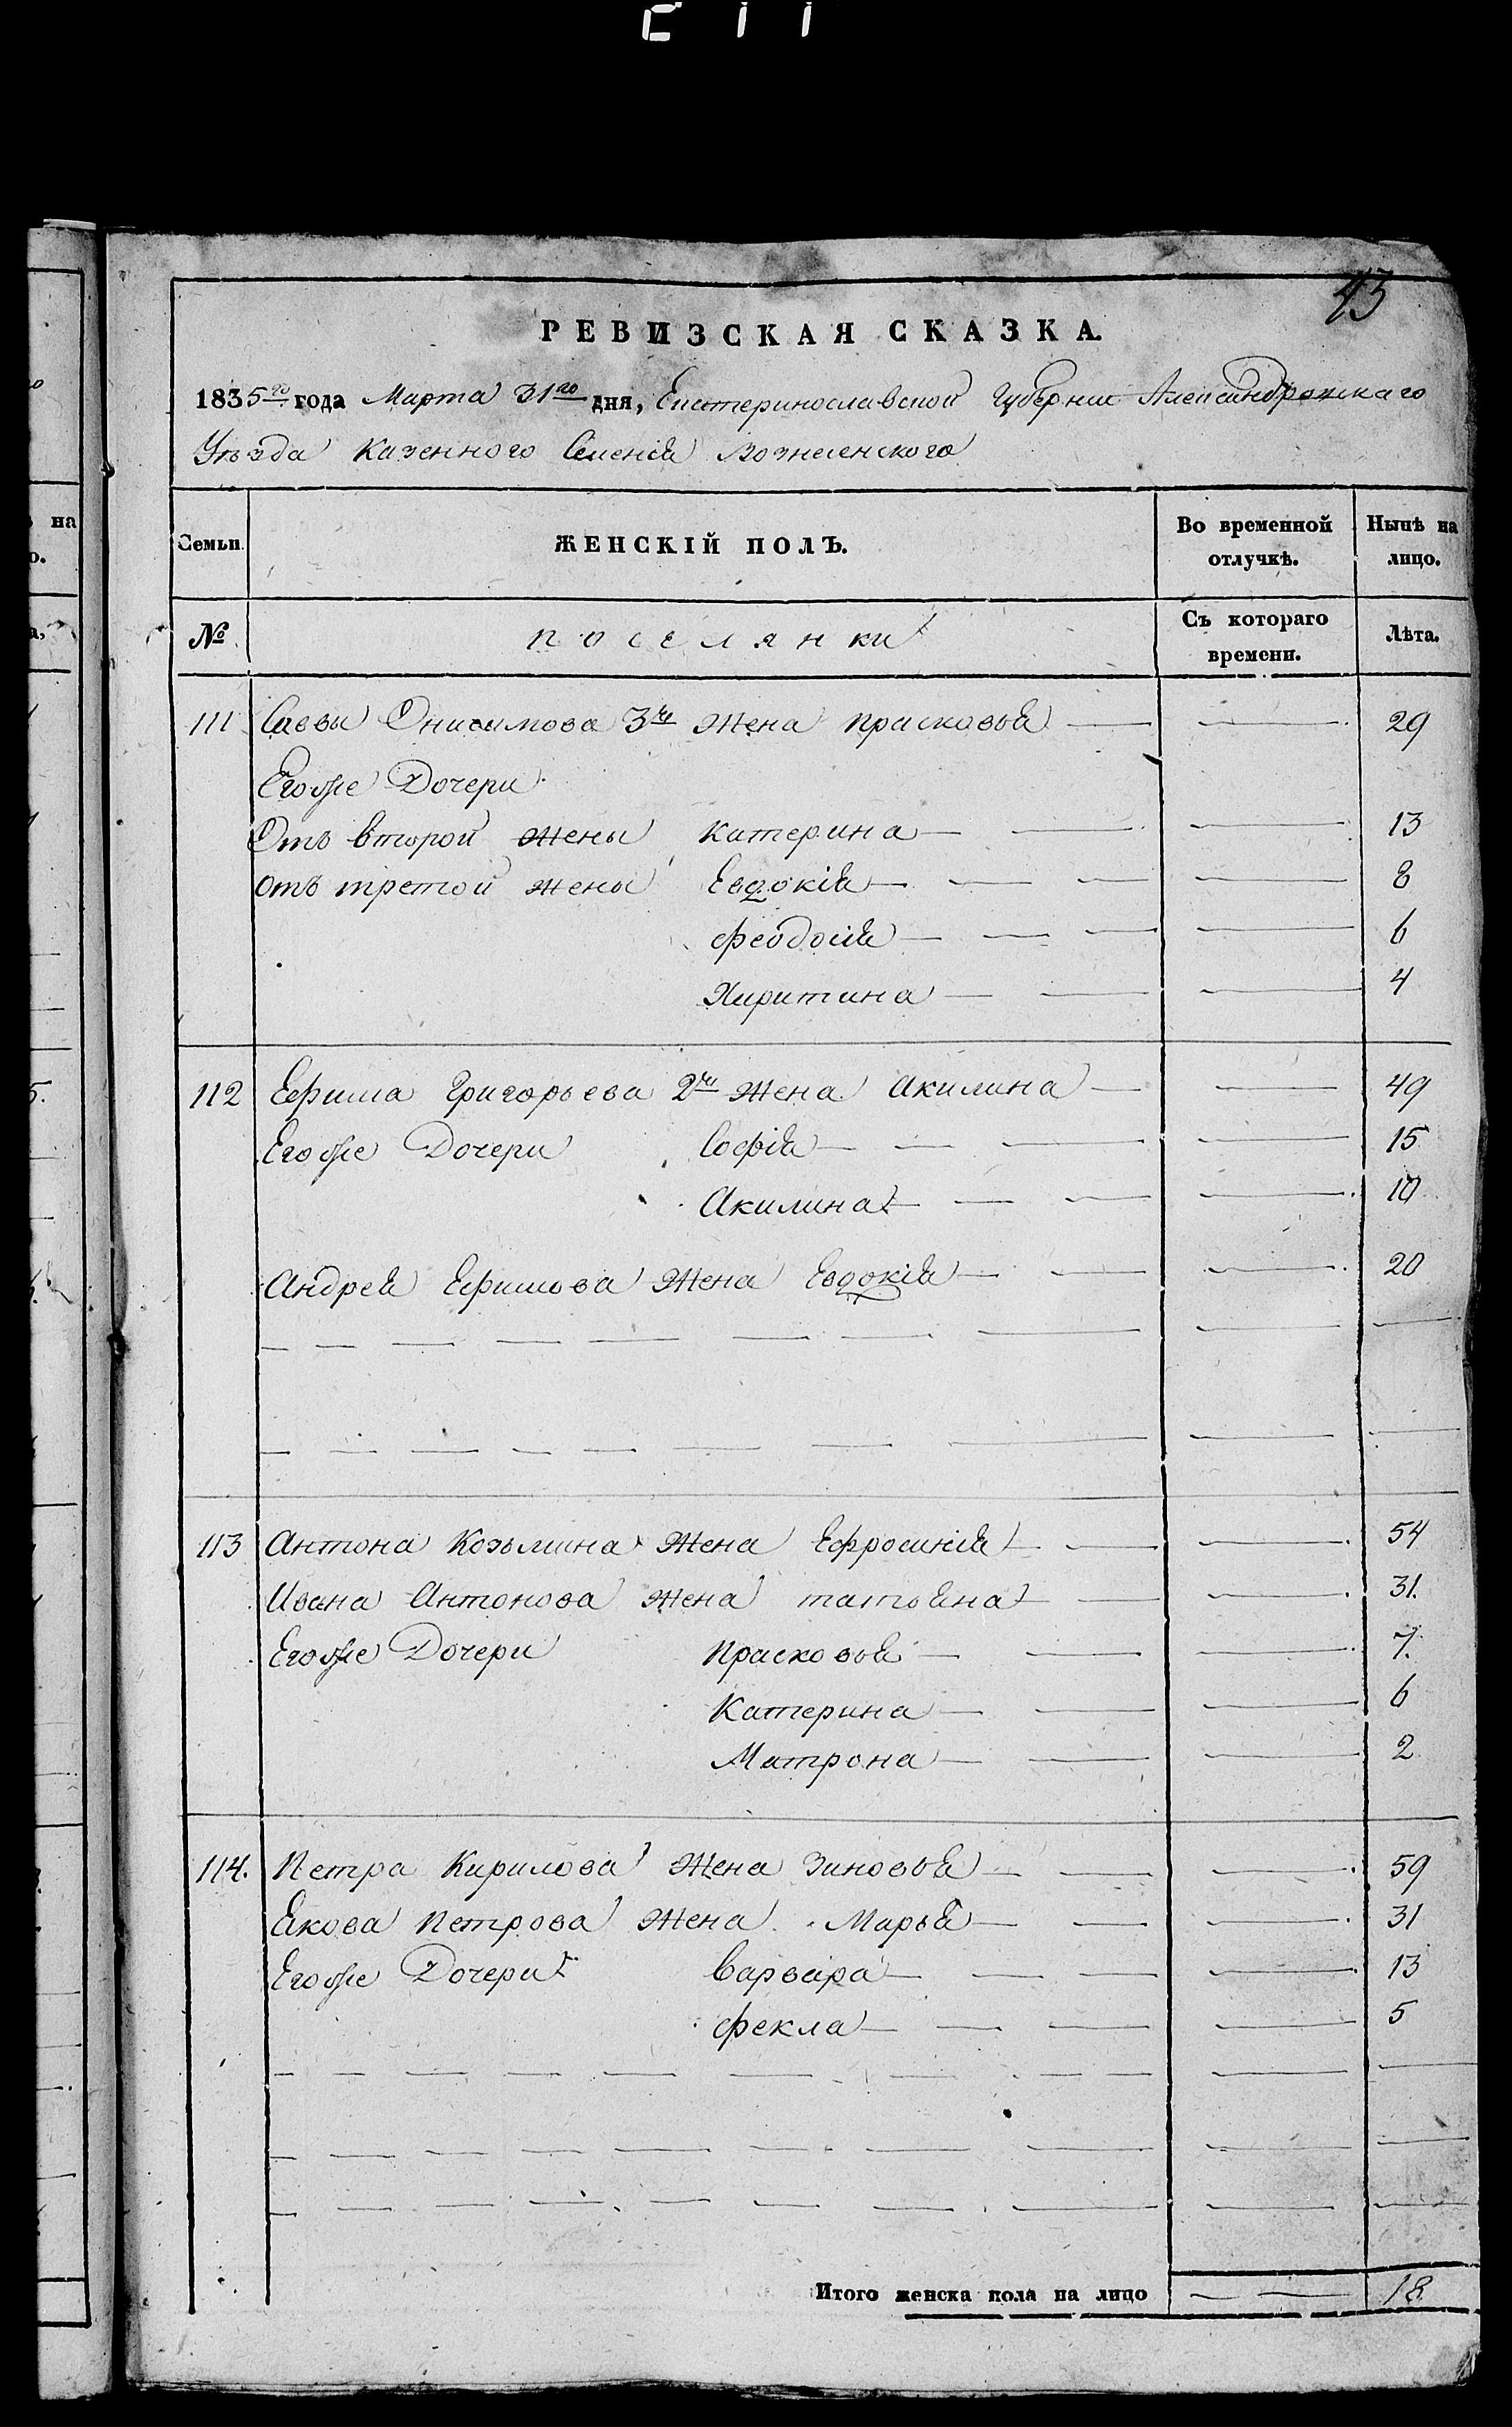 43
РЕВИЗСКАЯ СКАЗКА.
1835го года Марта 31го дня, Екатеринославской Губернии Александровскаго
Уѣзда Казенного Селенія Вознесенского
Семьи. ЖЕНСКІЙ ПОЛЪ. Во временной отлучкѣ. Нынѣ на лицо.
№ поселянки Съ котораго времени. Лѣта.
111 Саввы Онисимова 3я Жена Прасковья 29
Егоже Дочери
Отъ второй жены Катерина 13
отъ третой жены Евдокія 8
Феодосія 6
Харитина 4
112 Ефима Григорьева 2я Жена Акилина 49
Егоже Дочери Софія 15
Акилина 10
Андрея Ефимова Жена Евдокія 20
113 Антона Козьмина Жена Ефросинія 54
Ивана Антонова Жена татьяна 31.
Егоже Дочери Прасковья 7.
Катерина 6
Матрона 2
114. Петра Кирилова Жена Зиновья 59
Якова Петрова Жена Марья 31
Егоже Дочери Варвара 13
Фекла 5
Итого женска пола на лицо 18